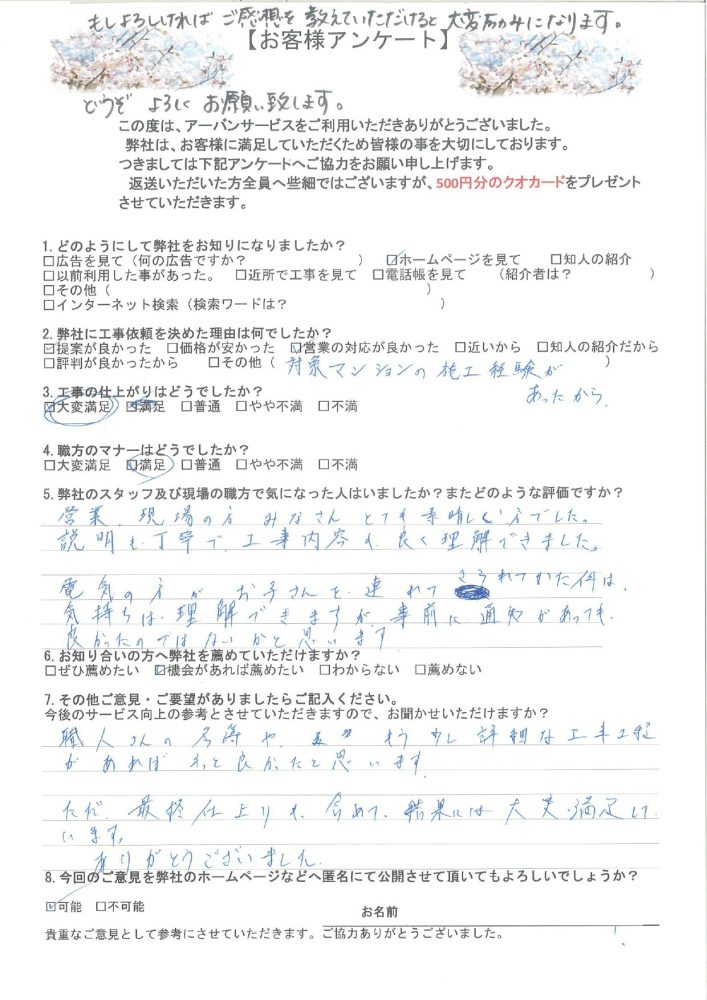 もしよろしければ ご感想を 教えていただけると 大変励みになります。
【お客様アンケート】
どうぞ よろしく お願い致します。
この度は、アーバンサービスをご利用いただきありがとうございました。
弊社は、お客様に満足していただくため皆様の事を大切にしております。
つきましては下記アンケートへご協力をお願い申し上げます。
返送いただいた方全員へ些細ではございますが、500円分のクオカードをプレゼント
させていただきます。
1. どのようにして弊社をお知りになりましたか？
□広告を見て（何の広告ですか？　　　　　　　　）　☑ホームページを見て　□知人の紹介
□以前利用した事があった。　□近所で工事を見て　□電話帳を見て　（紹介者は？　　　　　）
□その他（　　　　　　　　　　　　　　　　　　　　）
□インターネット検索（検索ワードは？　　　　　　　　　　）
2. 弊社に工事依頼を決めた理由は何でしたか？
☑提案が良かった　□価格が安かった　☑営業の対応が良かった　□近いから　□知人の紹介だから
□評判が良かったから　□その他（対象マンションの施工経験が　）
あったから。
3. 工事の仕上がりはどうでしたか？
☑大変満足　☑満足　□普通　□やや不満　□不満
4. 職方のマナーはどうでしたか？
□大変満足　☑満足　□普通　□やや不満　□不満
5. 弊社のスタッフ及び現場の職方で気になった人はいましたか？またどのような評価ですか？
営業、現場の方 みなさん とても素晴しい方でした。
説明も丁寧で、工事内容も良く理解できました。
電気の方が お子さんを 連れて
気持ちは理解できますが、事前に通知があっても
良かったのではないかと思います
6. お知り合いの方へ弊社を薦めていただけますか？
□ぜひ薦めたい　☑機会があれば薦めたい　□わからない　□薦めない
7. その他ご意見・ご要望がありましたらご記入ください。
今後のサービス向上の参考とさせていただきますので、お聞かせいただけますか？
職人さんの名簿や、もう少し詳細な工事工程
があればもっと良かったと思います。
ただ、最終仕上りも含めて、結果には大変満足して
います。
ありがとうございました。
8. 今回のご意見を弊社のホームページなどへ匿名にて公開させて頂いてもよろしいでしょうか？
☑可能　□不可能
お名前
貴重なご意見として参考にさせていただきます。ご協力ありがとうございました。